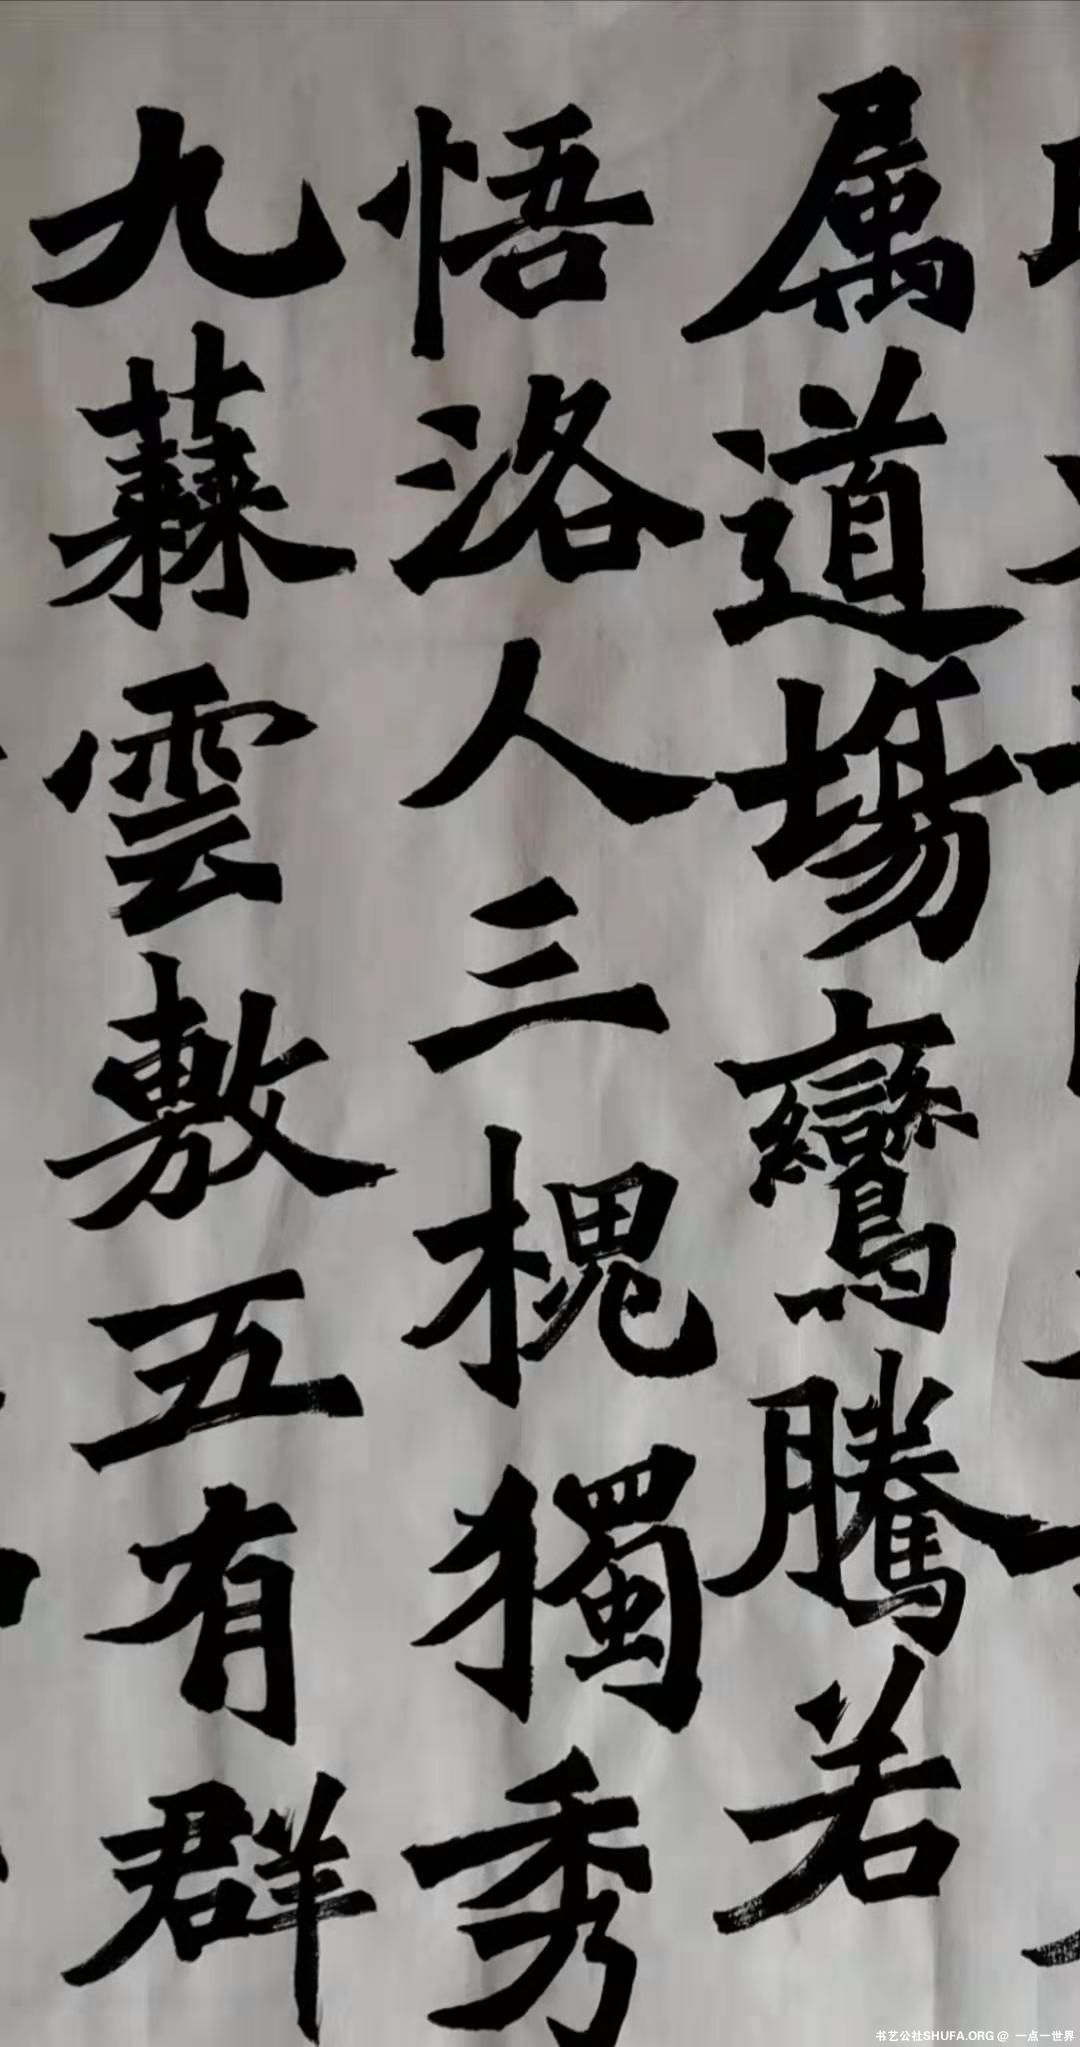 属道場鸞騰若
悟洛人三槐獨秀
九蕀雲敷五有群
书艺公社SHUFA.ORG @ 一点一世界